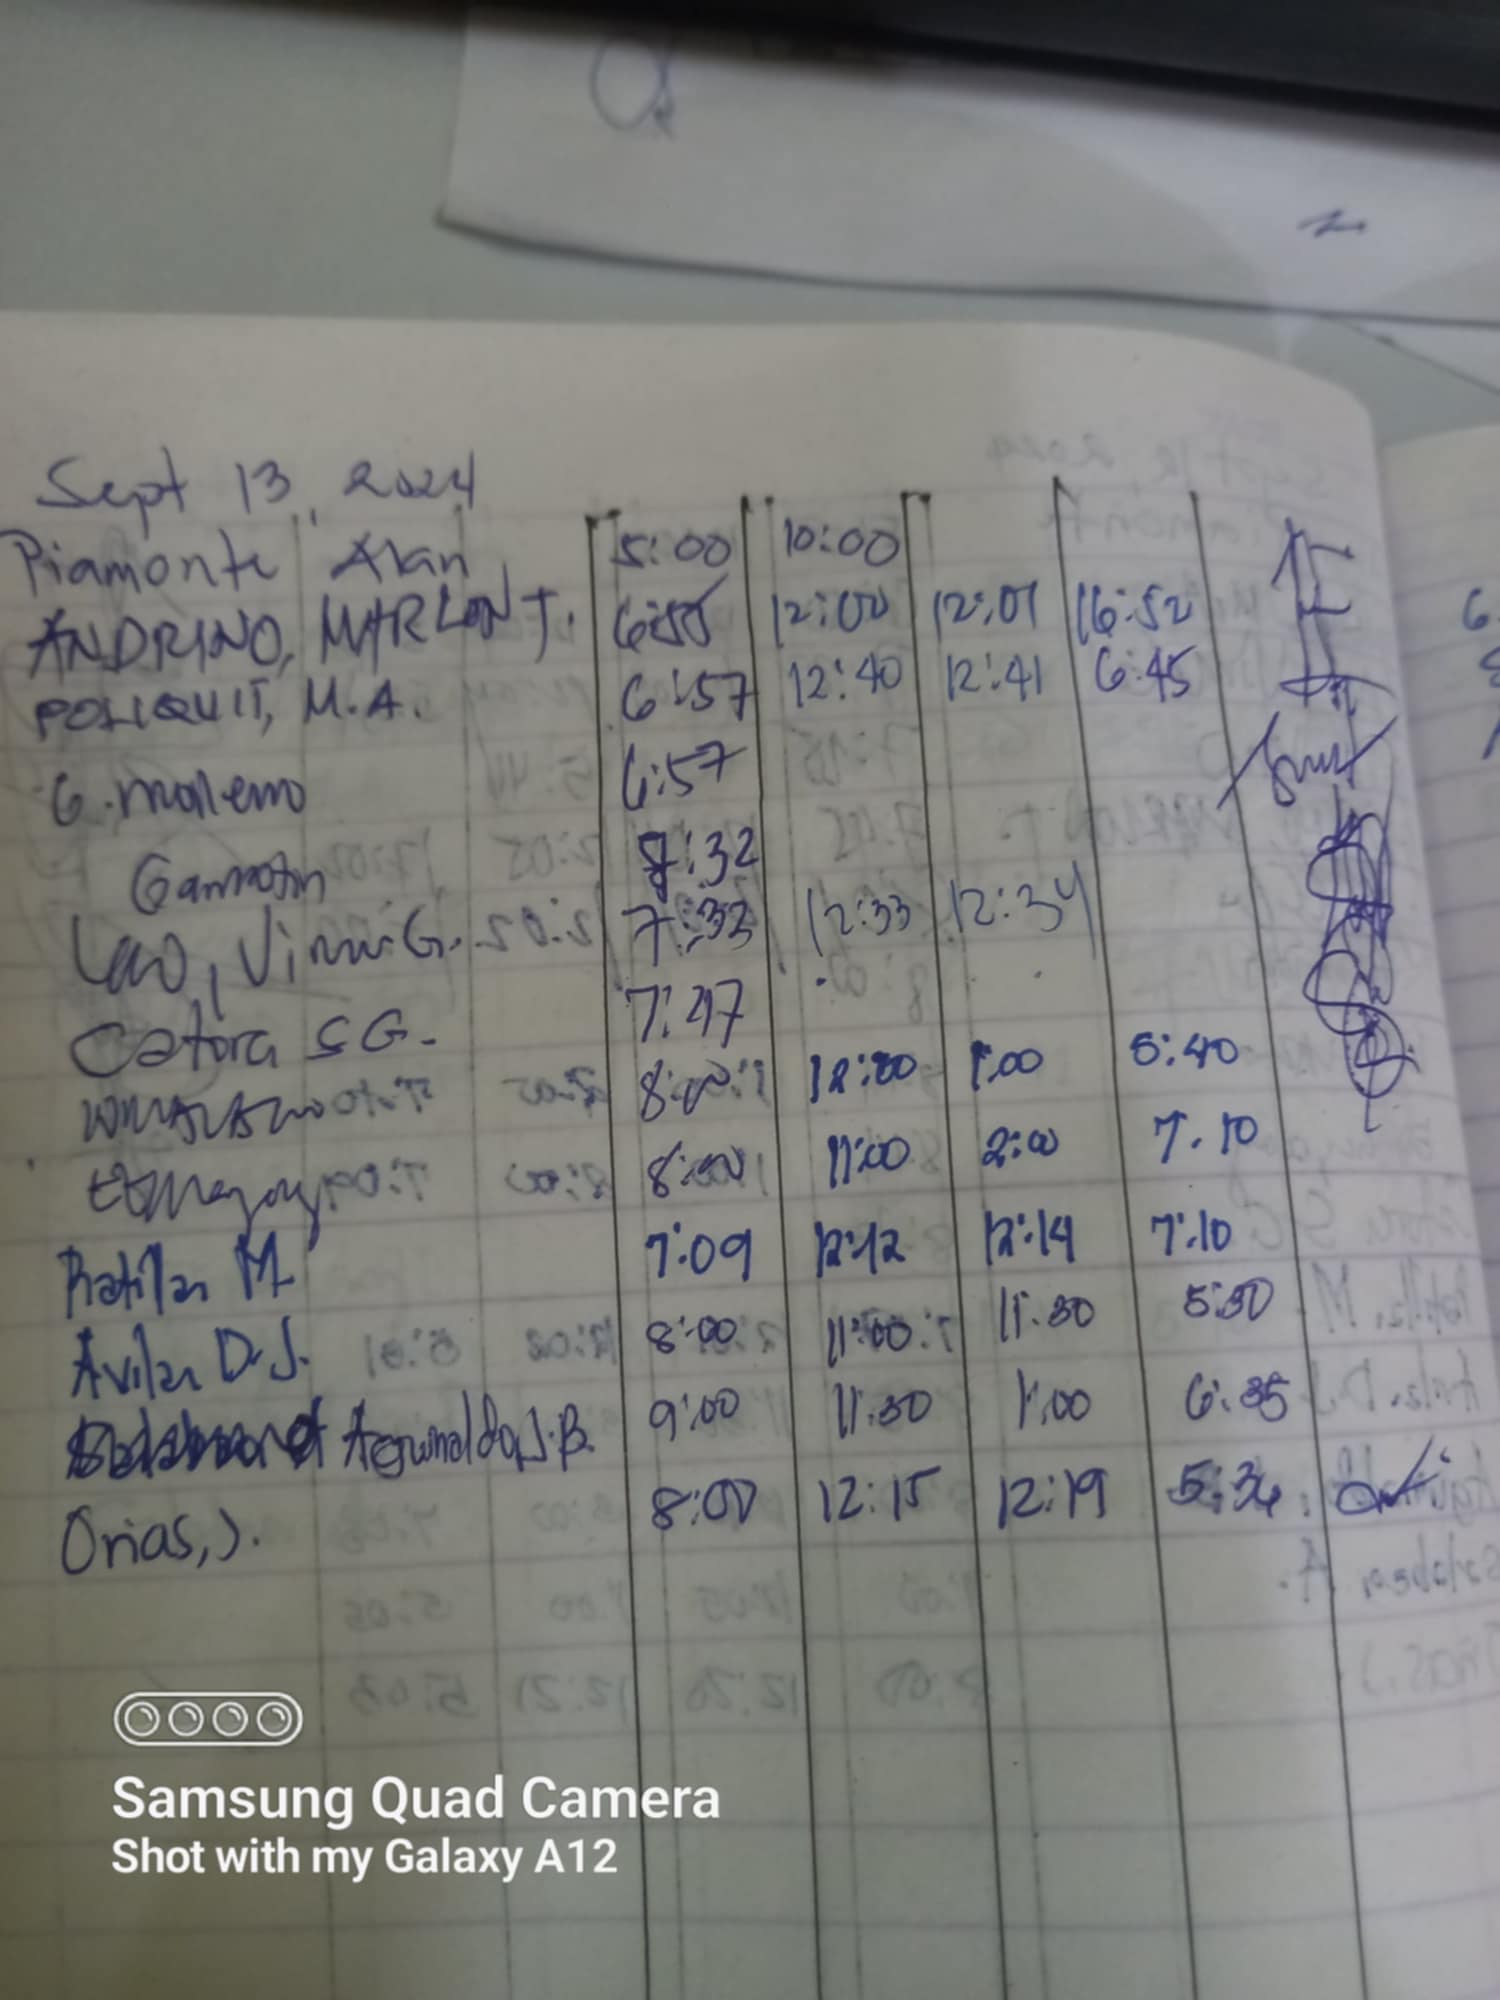 Sept 13, 2024
Piamonte Alan 5:00 10:00
ANDRINO, MARLON J. 6:55 12:00 12:01 16:52
POLIQUIT, M.A. 6:57 12:40 12:41 6:45
G. mollemo 6:57
Gamotin 8:32
Lao, Vinni G. 7:32 12:33 12:34
Catora S G. 7:47
8:00 12:00 1:00 5:40
8:00 11:00 2:00 7.10
Ratilla M. 7:09 12:12 12:14 7:10
Avila D.J. 8:00 11:00 11:30 5:30
Aguinaldo, J.B. 9:00 11:30 1:00 6:35
Orias, J. 8:00 12:15 12:19 5:34
Samsung Quad Camera
Shot with my Galaxy A12